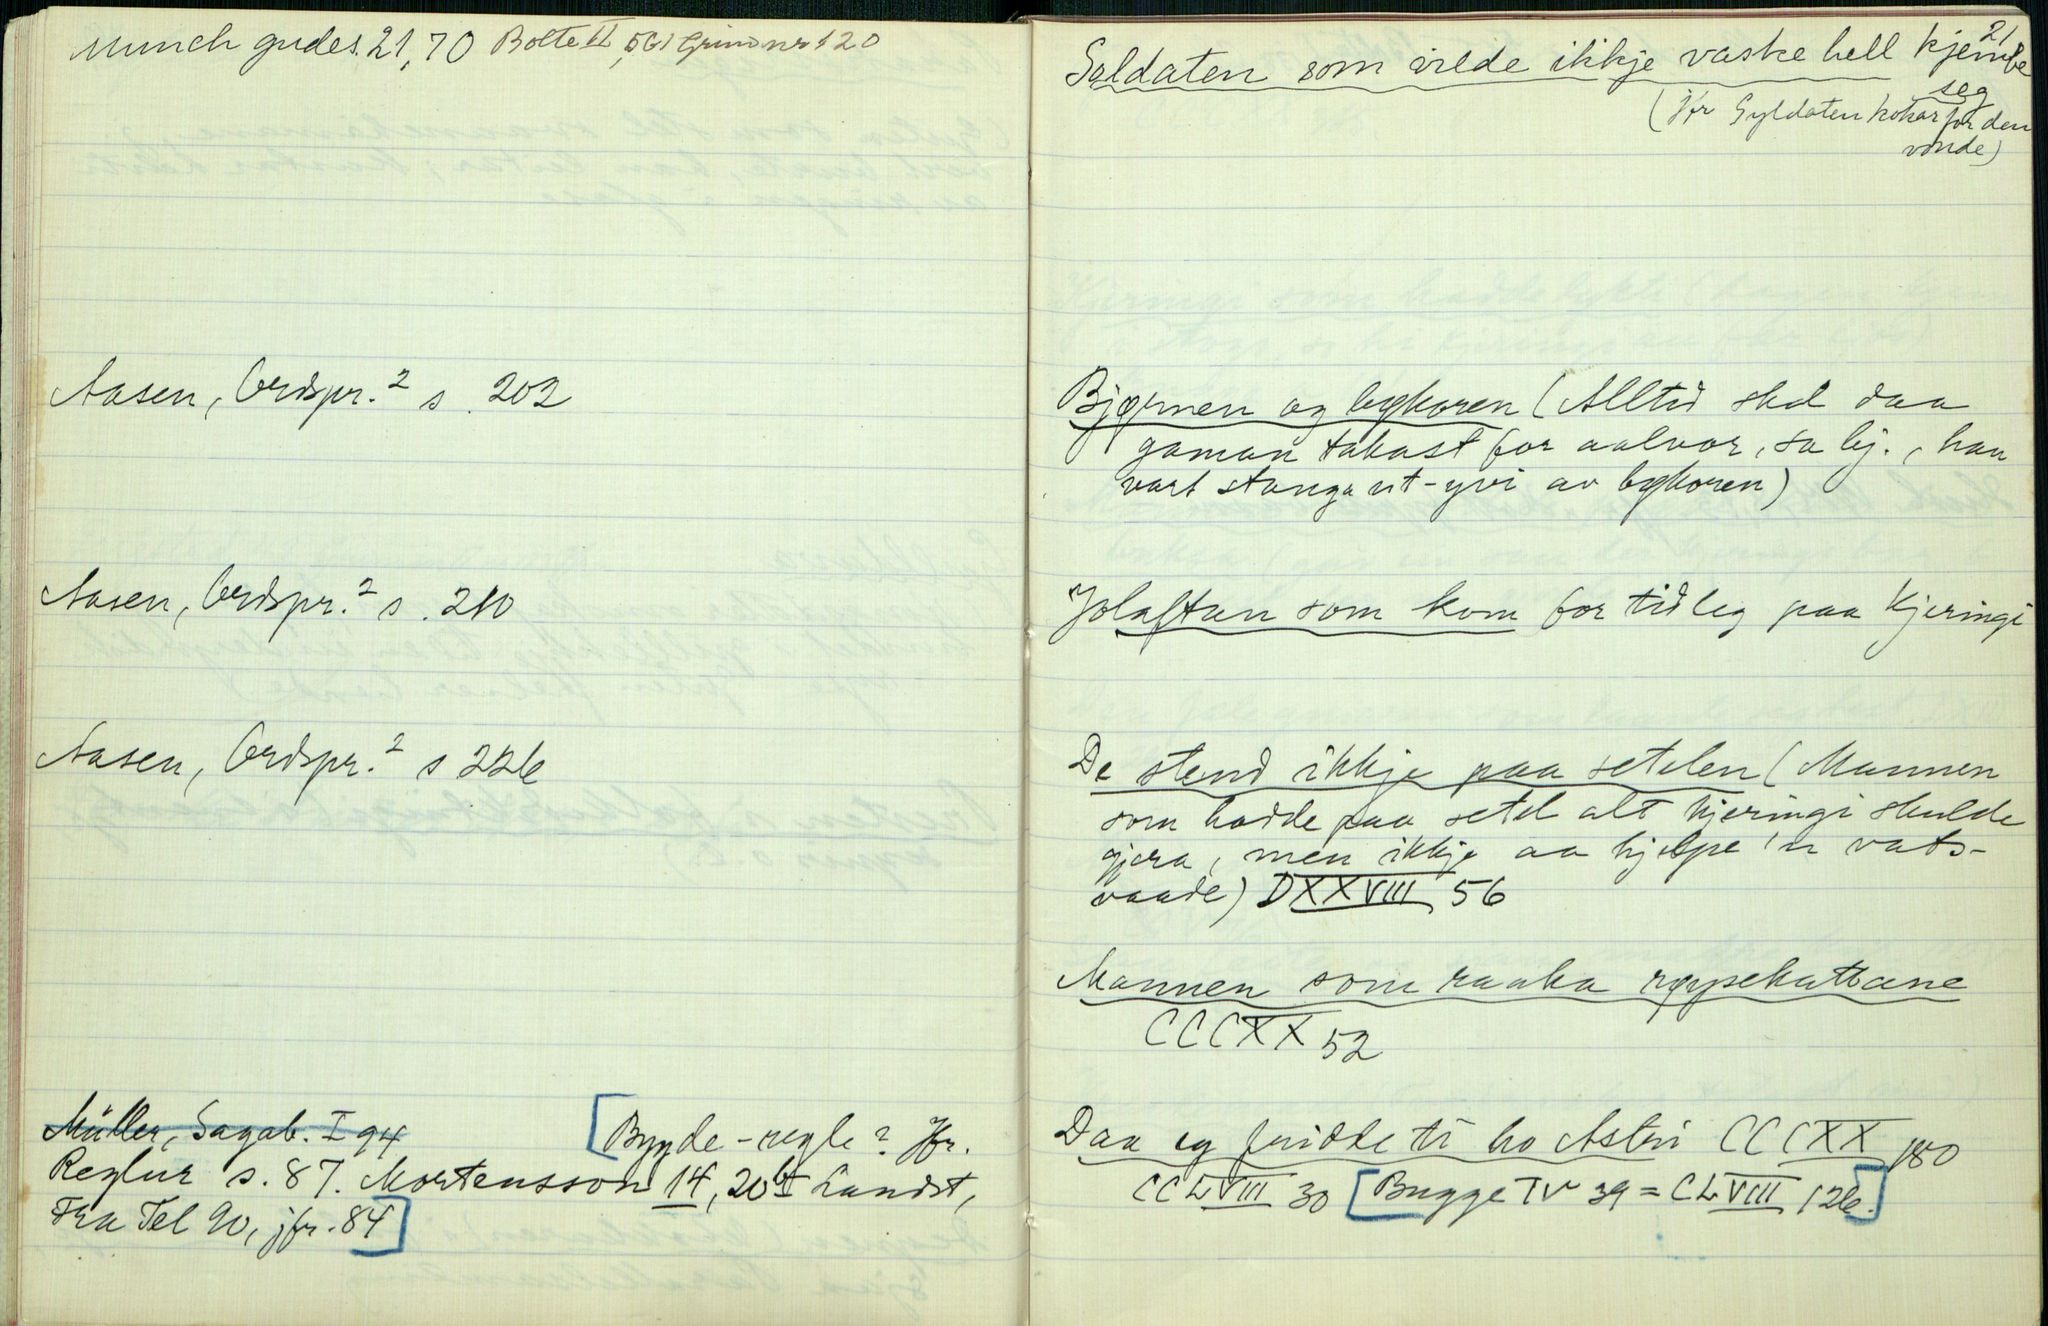 Munch gudes. 21, 70 Bolte II, 561 Grimm nr 120
Aasen, Ordspr.² s. 202
Aasen, Ordspr.² s. 210
Aasen, Ordspr.² s 226
Müller, Sagab. I 94
[Bygde-regle? Jfr.
Reglur s. 87. Mortensson 14, 20 Landst,
Fra Tel 90, jfr. 84]
21
Soldaten som vilde ikkje vaske hell kjembe
seg
(Jfr Syldaten kokar for den
vonde)
Bjørnen og bykoren (Alltid skal daa
gaman takast for aalvor, sa bj., han
vart stanga ut-yvi av bykoren)
Jolaftan som kom for tidleg paa kjeringi
De stend ikkje paa setelen (Mannen
som hadde paa setel alt kjeringi skulde
gjera, men ikkje aa hjelpe 'n vats-
vaade) DXXVIII 56
Mannen som raaka røysekattane
CCCXX 52
Daa eg fridde ti ho Astri CCCXX 180
CCLVIII 30 [Bugge IV 39 = CLVIII 126.]